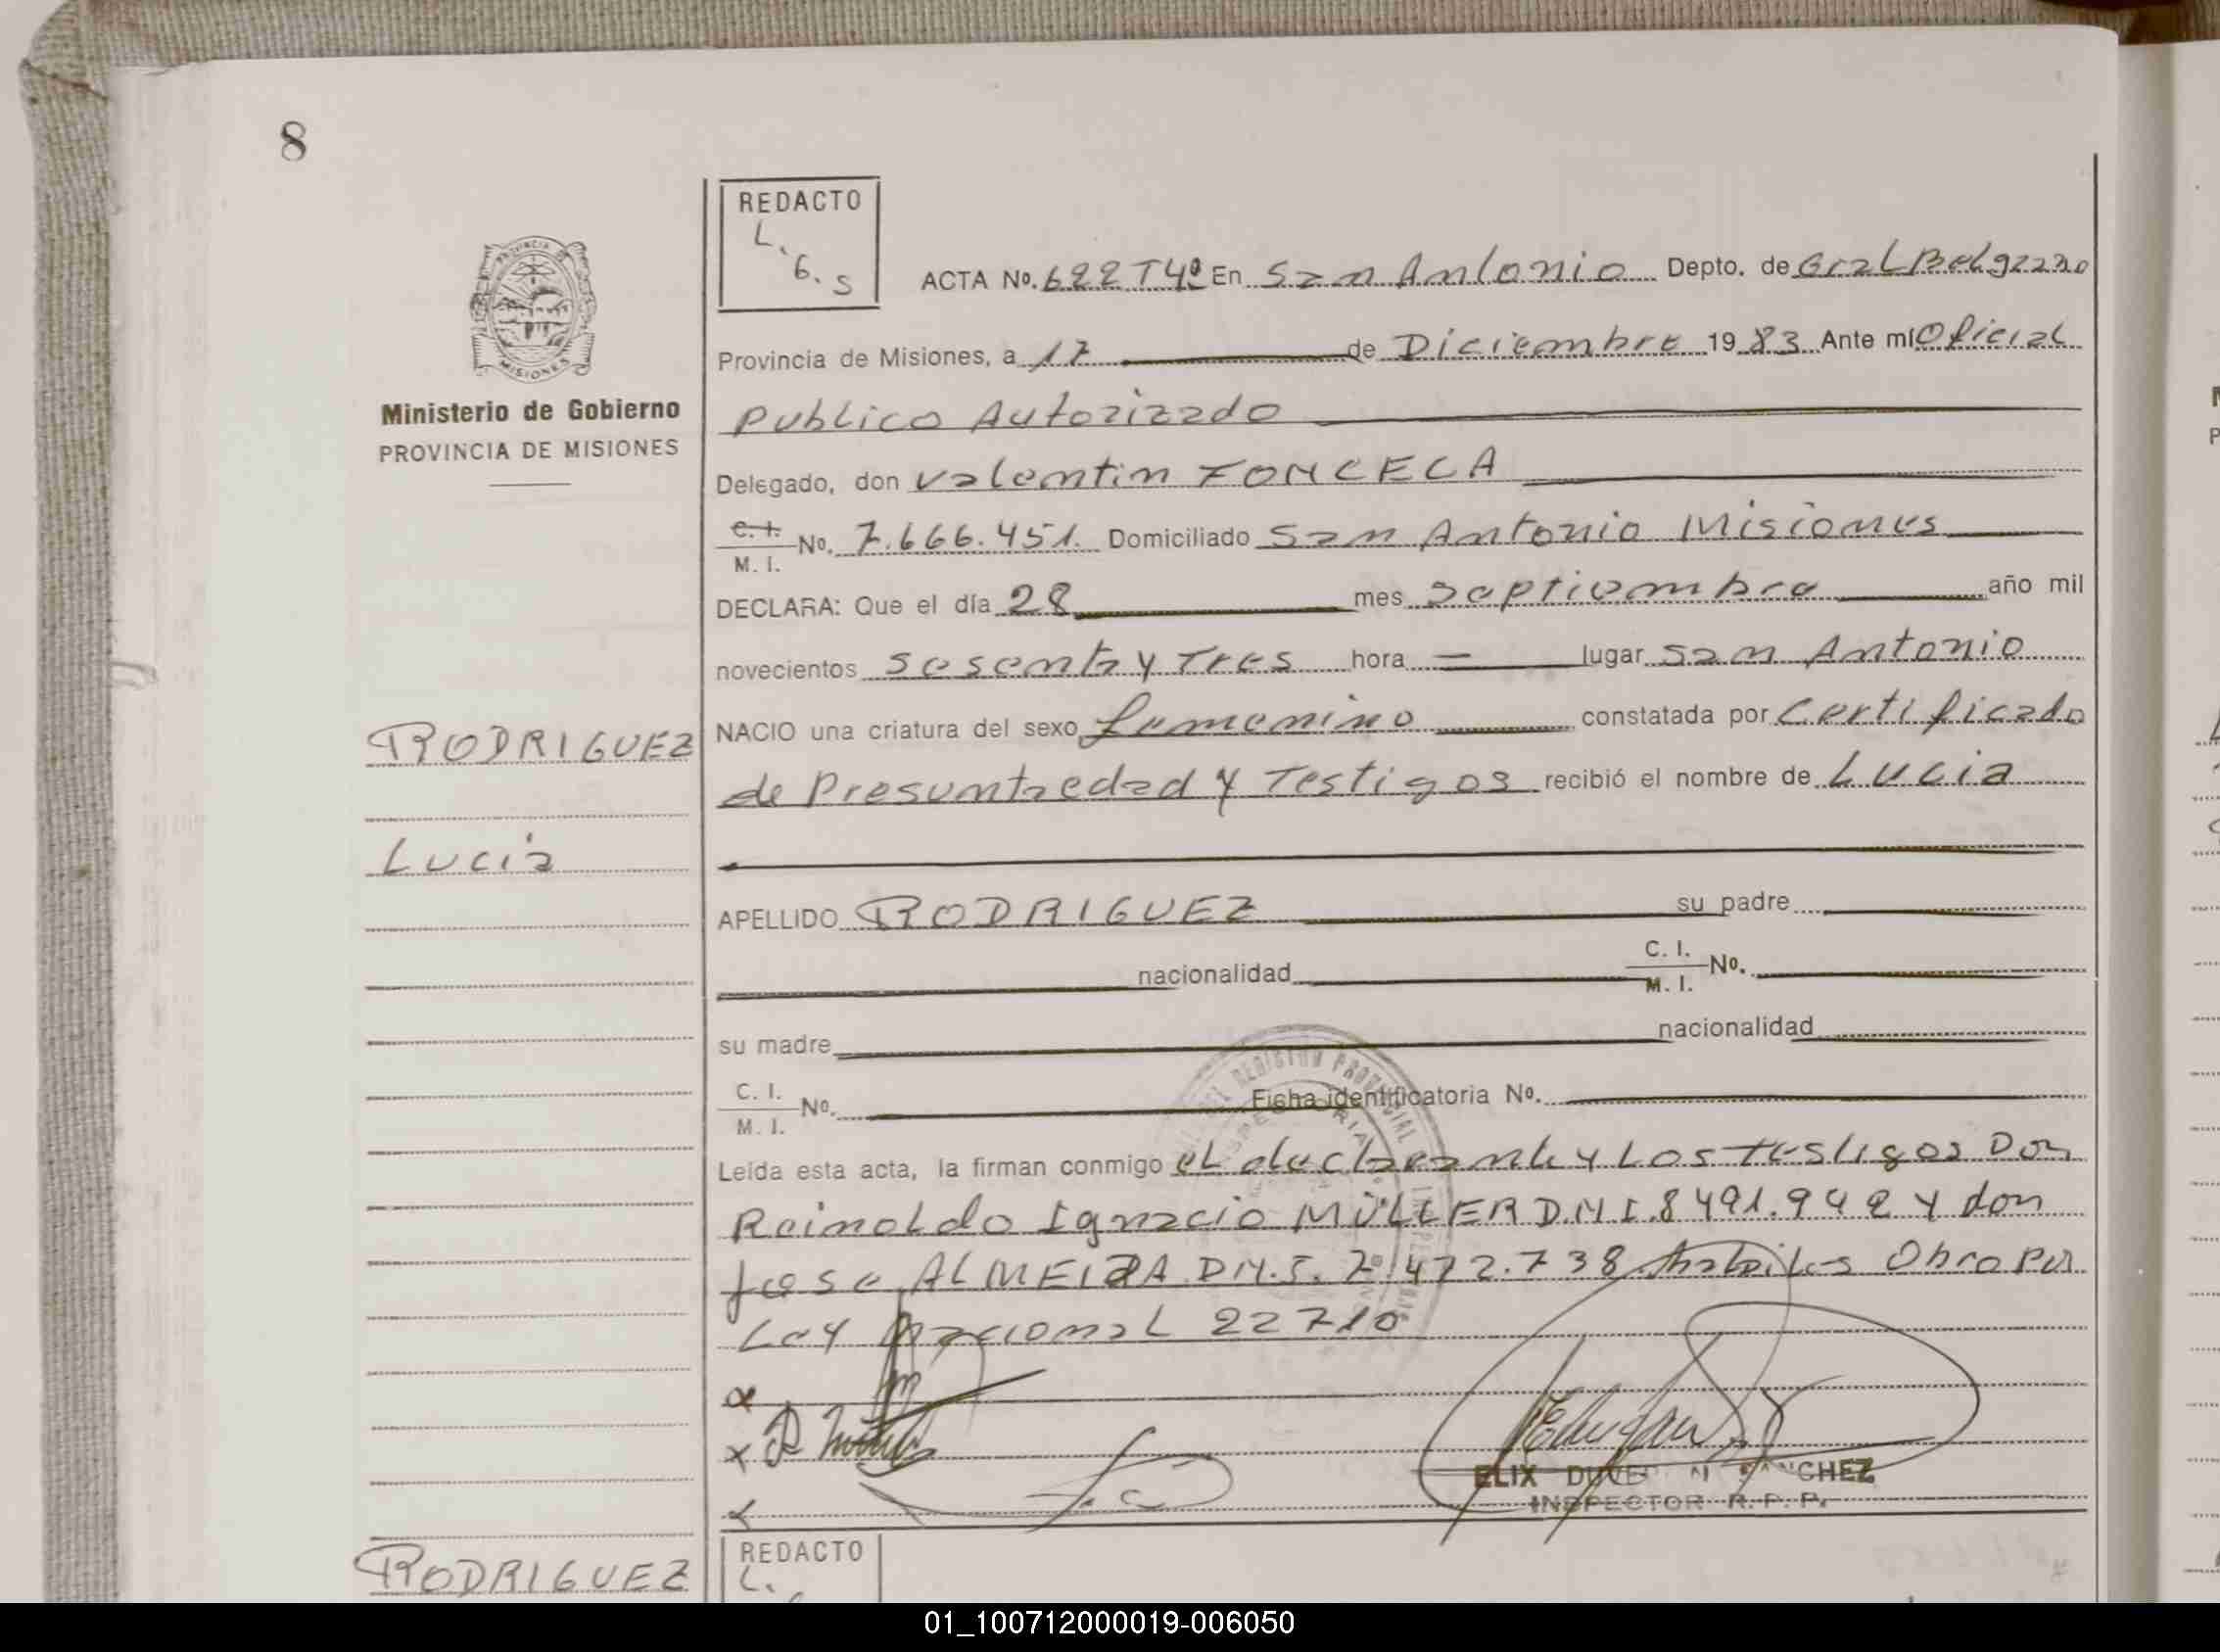 8
REDACTO
L.
G. S
ACTA No. 622 T4º En San Antonio Depto. de Gral Belgrano
Provincia de Misiones, a 17 de Diciembre 1983 Ante mí Oficial
Publico Autorizado
MISIONES
Ministerio de Gobierno
PROVINCIA DE MISIONES
Delegado, don Valentin FONCECA
C. I.
M. I. No. 7.666.451. Domiciliado San Antonio Misiones
DECLARA: Que el día 28 mes Septiembre año mil
novecientos sesenta y Tres hora — lugar San Antonio
RODRIGUEZ
NACIO una criatura del sexo femenino constatada por Certificado
de Presunta edad y Testigos recibió el nombre de Lucia
Lucia
APELLIDO RODRIGUEZ su padre
nacionalidad C. I.
M. I. No.
su madre nacionalidad
C. I.
M. I. No. Ficha identificatoria No.
Leída esta acta, la firman conmigo el declarante y Los testigos Don
Reinoldo Ignacio MÜLLER D.N.I. 8491.942 y don
Jose ALMEIDA D.N.I. 7.472.738 Obra por
Ley Nacional 22710
SANCHEZ
INSPECTOR R. P. P.
REDACTO
L.
RODRIGUEZ
01_100712000019-006050